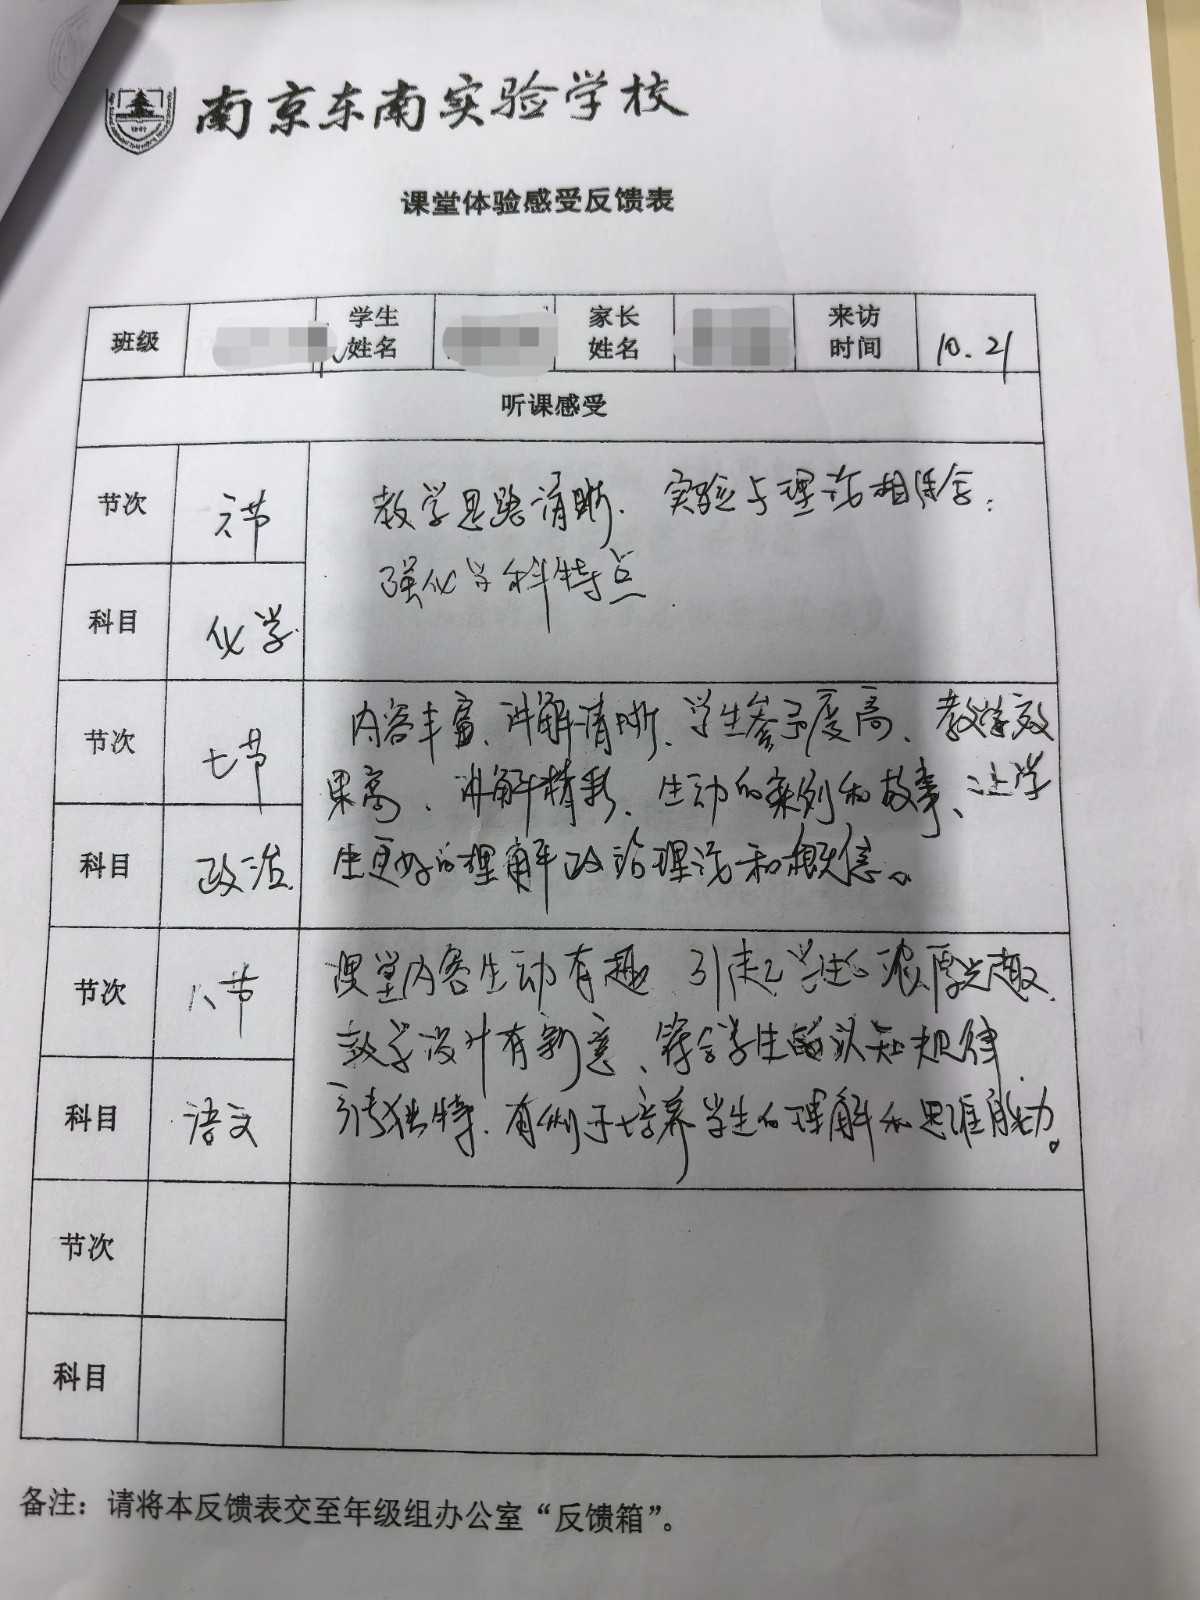 南京东南实验学校
课堂体验感受反馈表
班级 学生姓名 家长姓名 来访时间 10.21
听课感受
节次 六节
教学思路清晰、实验与理论相结合;
强化学科特点
科目 化学
节次 七节
内容丰富、讲解清晰、学生参予度高、教学效
果高、讲解精彩、生动的案例和故事、让学
生更好的理解政治理论和概念。
科目 政治
节次 八节
课堂内容生动有趣 引起学生的浓厚兴趣
教学设计有新意、符合学生的认知规律
独特、有利于培养学生的理解和思维能力。
科目 语文
节次
科目
备注：请将本反馈表交至年级组办公室“反馈箱”。